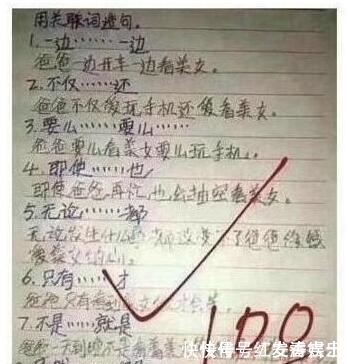 用关联词造句。
1.一边……一边
爸爸一边开车一边看美女。
2.不仅……还
爸爸不仅爱玩手机还爱看美女。
3.要么……要么……
爸爸要么看美女要么玩手机。
4.即使……也
即使爸爸再忙，也会抽空看美女。
5.无论……都
无论发生什么 都改变不了爸爸
爱美女的心。
6.只有……才
爸爸只有看到美女 才会笑。
7.不是……就是
爸爸一天到晚不是看美
100
快传号 红发